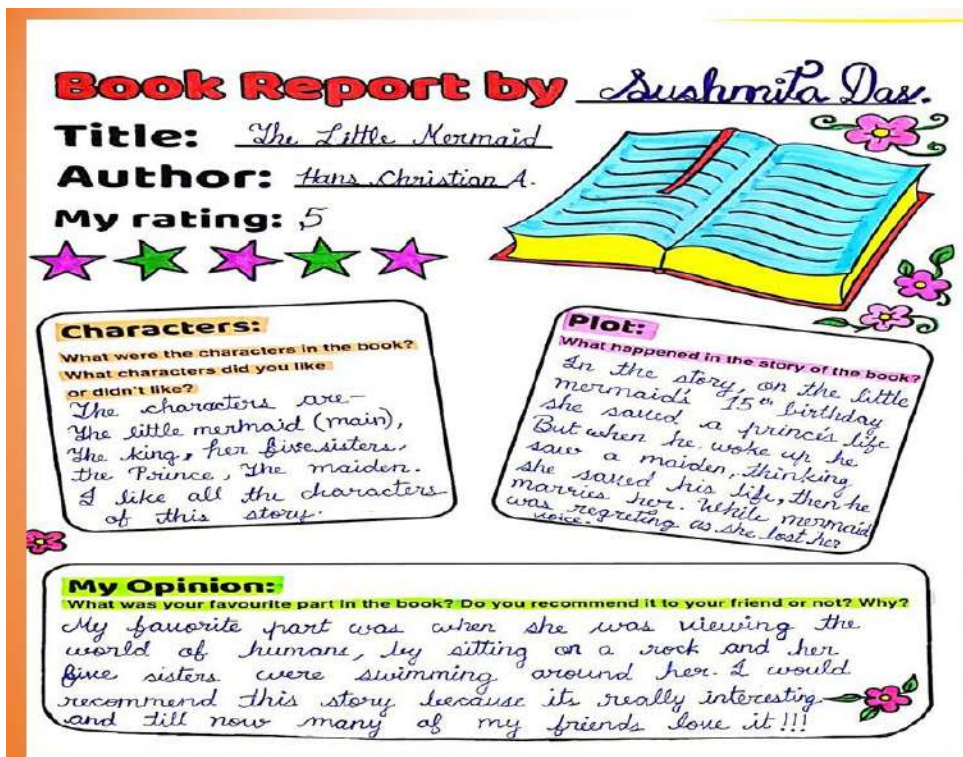 Book Report by Sushmita Das.
Title: The Little Mermaid
Author: Hans Christian A.
My rating: 5
Characters:
What were the characters in the book?
What characters did you like
or didn't like?
The characters are-
The little mermaid (main),
The king, her five sisters,
the Prince, The maiden.
I like all the characters
of this story.
Plot:
What happened in the story of the book?
In the story, on the little
mermaid's 15th birthday
she saved a prince's life
But when he woke up he
saw a maiden, thinking
she saved his life, then he
marries her. While mermaid
was regreting as she lost her
voice.
My Opinion:
What was your favourite part in the book? Do you recommend it to your friend or not? Why?
My favorite part was when she was viewing the
world of humans, by sitting on a rock and her
five sisters were swimming around her. I would
recommend this story because its really interesting
and till now many of my friends love it!!!